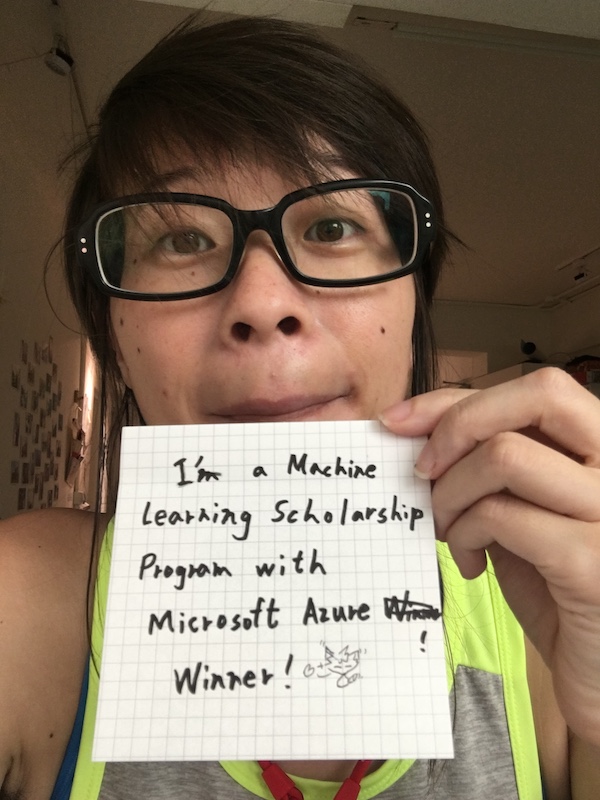 I'm a Machine
Learning Scholarship
Program with
Microsoft Azure
!
Winner!